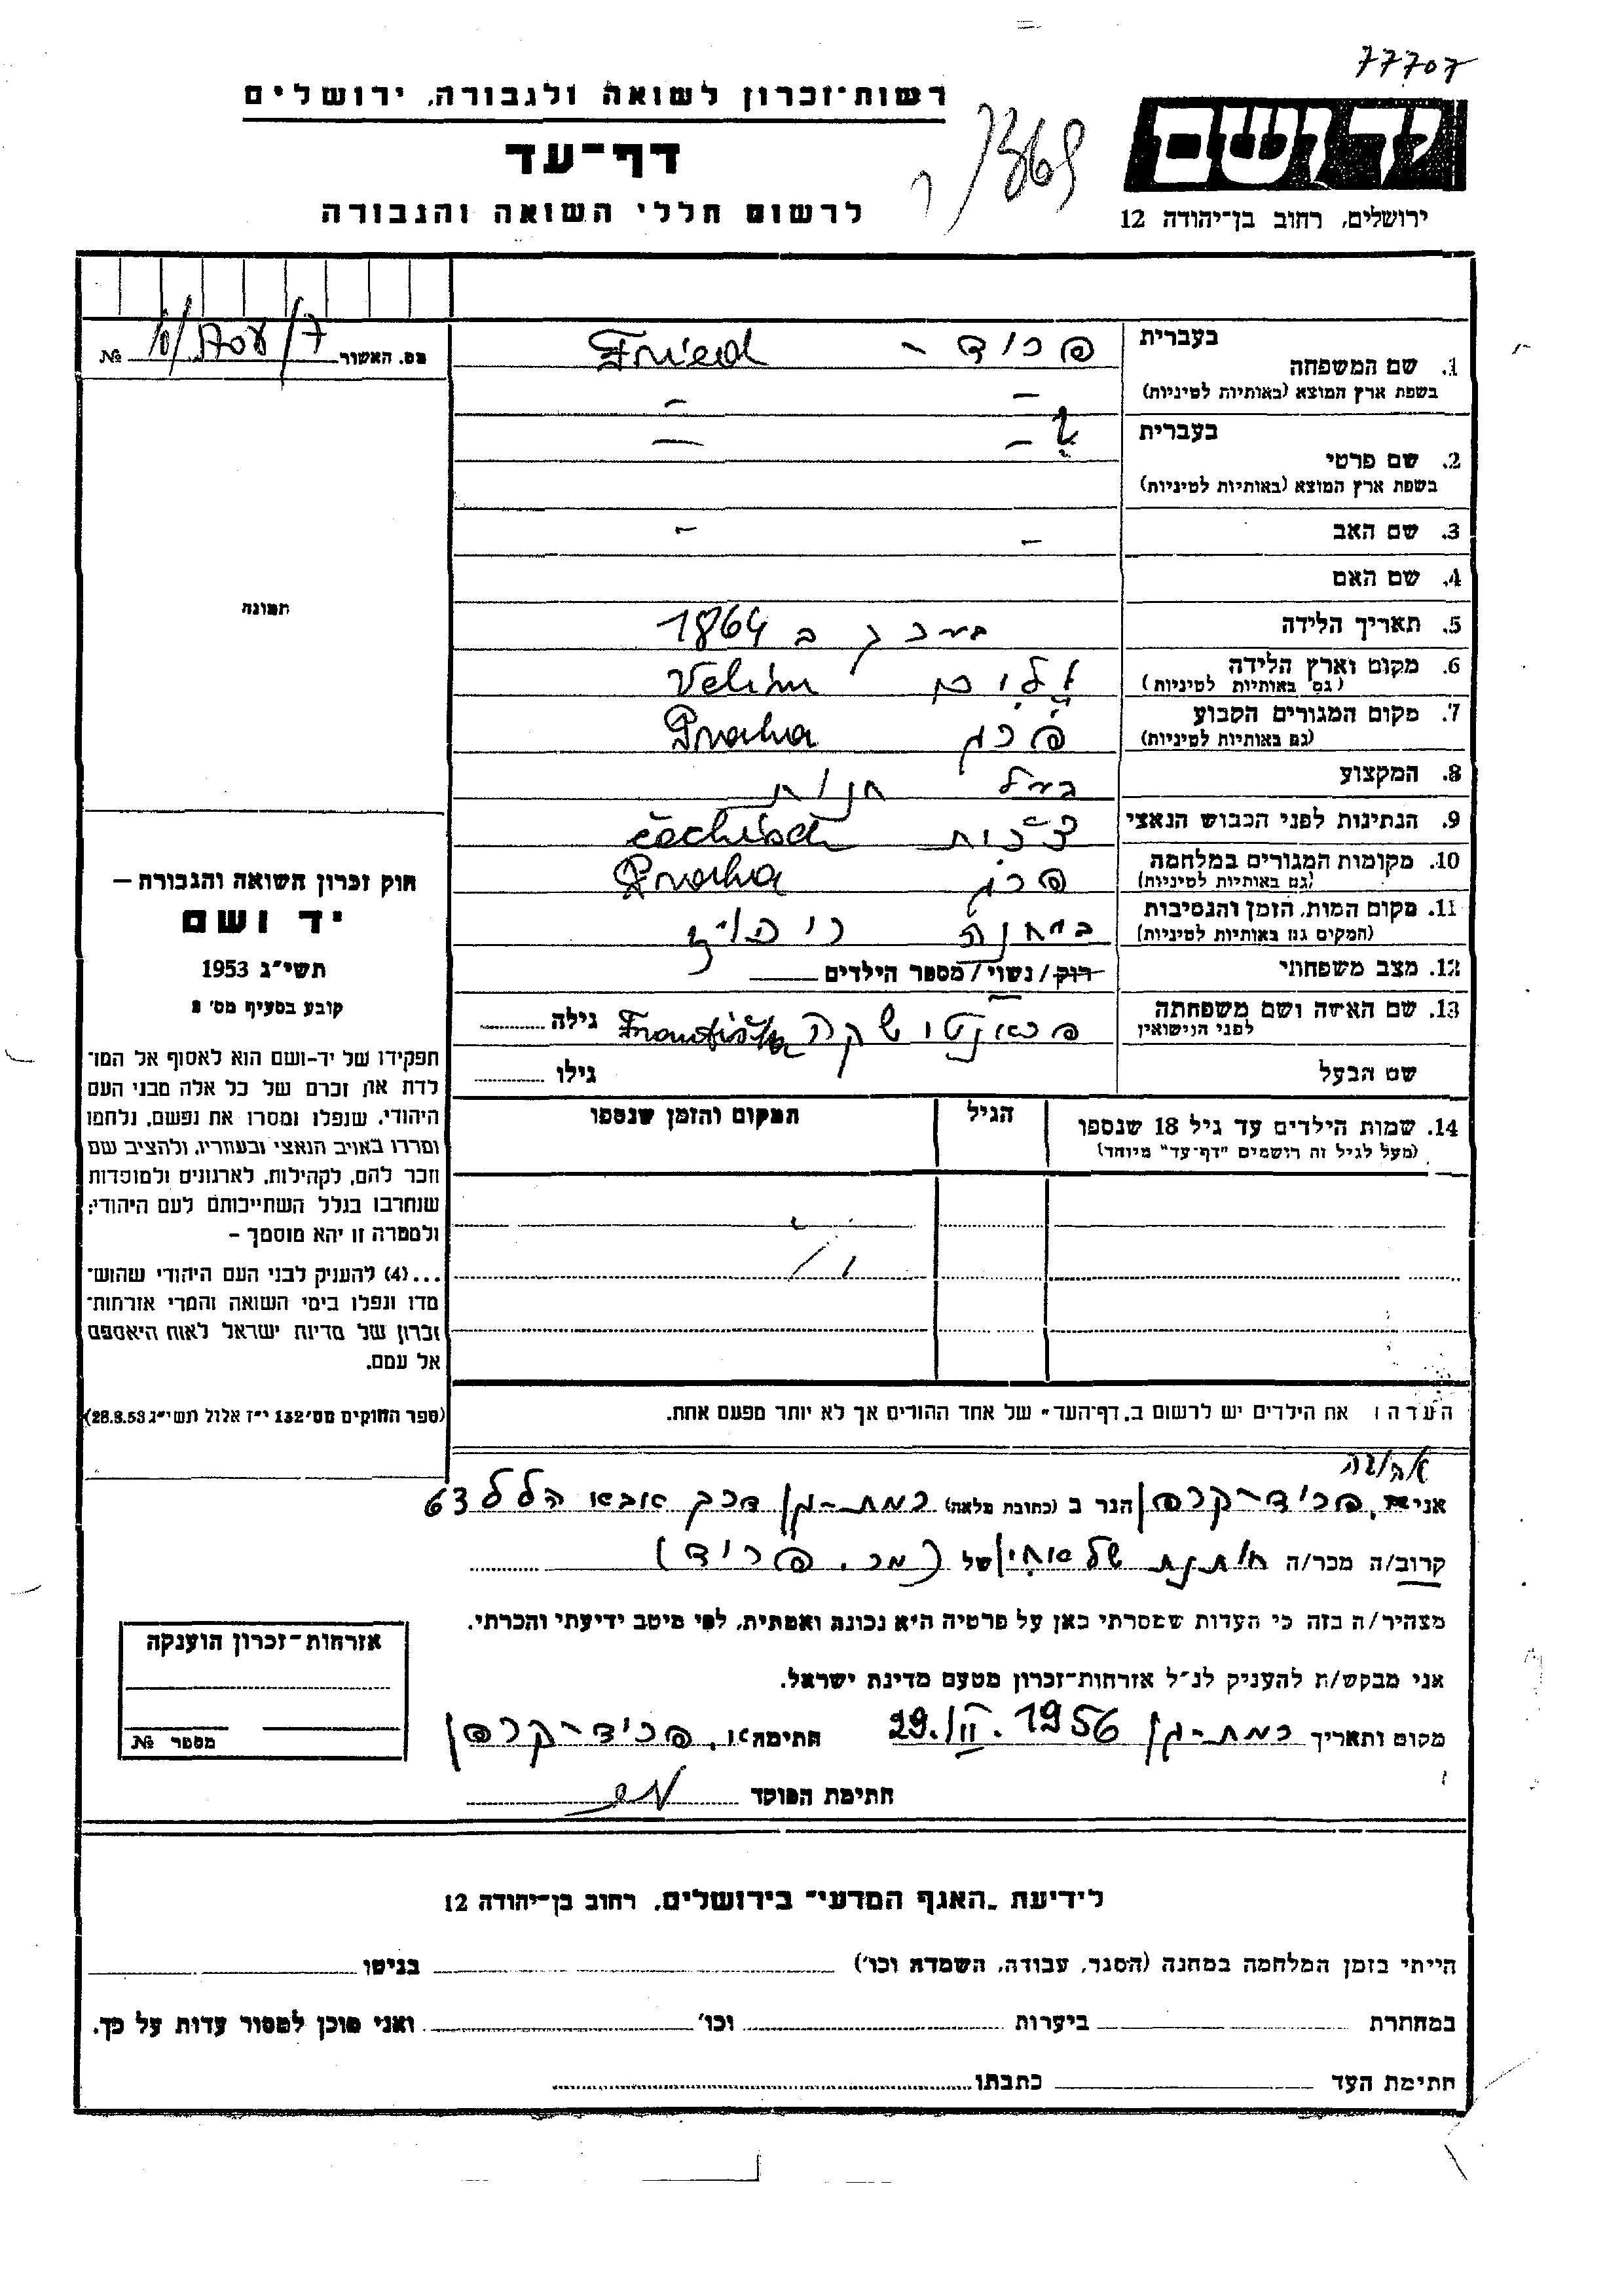 77707
רשות־זכרון לשואה ולגבורה, ירושלים
דף־עד
לרשום חללי השואה והגבורה
יד ושם
ירושלים, רחוב בן־יהודה 12
מס. האשור №
בעברית
1. שם המשפחה
פריד - Fried
בשפת ארץ המוצא (באותיות לטיניות)
בעברית
2. שם פרטי
בשפת ארץ המוצא (באותיות לטיניות)
3. שם האב
4. שם האם
5. תאריך הלידה 1864
6. מקום וארץ הלידה
(גם באותיות לטיניות) Velim
7. מקום המגורים הקבוע
(גם באותיות לטיניות) פרג Praha
8. המקצוע בעל חנות
9. הנתינות לפני הכבוש הנאצי צ'כית čechisch
10. מקומות המגורים במלחמה
(גם באותיות לטיניות) פרג Praha
11. מקום המות, הזמן והנסיבות
(המקום גם באותיות לטיניות) במחנה
12. מצב משפחתי רוק/נשוי/מספר הילדים
13. שם האשה ושם משפחתה
לפני הנישואין פראנטישקה Františka גילה
שם הבעל גילו
14. שמות הילדים עד גיל 18 שנספו
(מעל לגיל זה רושמים "דף־עד" מיוחד)
הגיל
המקום והזמן שנספו
תמונה
חוק זכרון השואה והגבורה –
יד ושם
תשי"ג 1953
קובע בסעיף מס' 2
תפקידו של יד-ושם הוא לאסוף אל המו־
לדת את זכרם של כל אלה מבני העם
היהודי, שנפלו ומסרו את נפשם, נלחמו
ומרדו באויב הנאצי ובעוזריו, ולהציב שם
וזכר להם, לקהילות, לארגונים ולמוסדות
שנחרבו בגלל השתייכותם לעם היהודי;
ולמטרה זו יהא מוסמך –
...(4) להעניק לבני העם היהודי שהוש־
מדו ונפלו בימי השואה והמרי אזרחות־
זכרון של מדינת ישראל לאות היאספם
אל עמם.
(ספר החוקים מס' 132 י"ז אלול תשי"ג 28.8.53)
הערה: את הילדים יש לרשום ב„דף־העד" של אחד ההורים אך לא יותר מפעם אחת.
אני פריד-קרמן הגר ב (כתובת מלאה) רמת-גן דרך אבא הלל 63
קרוב/ה מכר/ה חותנת של אחי של (מר. פריד)
מצהיר/ה בזה כי העדות שמסרתי כאן על פרטיה היא נכונה ואמתית, לפי מיטב ידיעתי והכרתי.
אני מבקש/ת להעניק לנ"ל אזרחות־זכרון מטעם מדינת ישראל.
מקום ותאריך רמת-גן 29.III.1956 חתימה פריד-קרמן
חתימת הפוקד
אזרחות־זכרון הוענקה
מספר №
לידיעת „האגף המדעי" בירושלים, רחוב בן־יהודה 12
הייתי בזמן המלחמה במחנה (הסגר, עבודה, השמדה וכו') בגיטו
במחתרת ביערות וכו' ואני מוכן למסור עדות על כך.
חתימת העד כתבתו